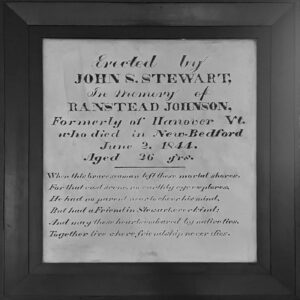 Erected by
JOHN S. STEWART,
In memory of
RANSTEAD JOHNSON,
Formerly of Hanover Vt.
who died in New-Bedford
June 2, 1844.
Aged 26 yrs.
When this brave seaman left these mortal shores,
For that east scene no earthly eye explores,
He had no parent near to cheer his mind,
But had a Friend in Stewart, ever kind;
And may these hearts endeared by native ties,
Together live where friendship never dies.